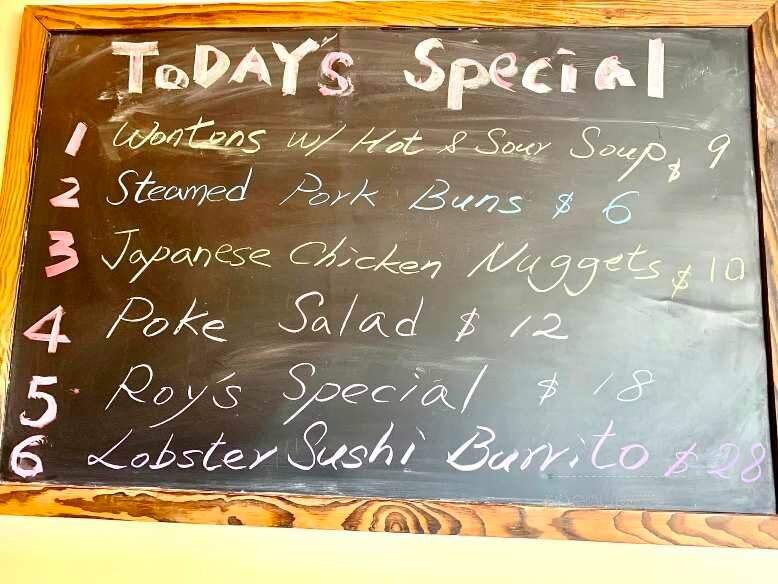 ToDAY'S Special
1 Wontons w/ Hot & Sour Soup $ 9
2 Steamed Pork Buns $ 6
3 Japanese Chicken Nuggets $ 10
4 Poke Salad $ 12
5 Roy's Special $ 18
6 Lobster Sushi Burrito $ 28